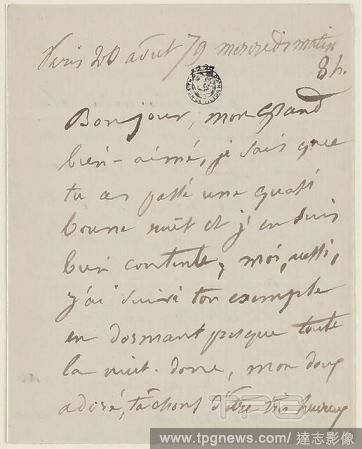 Paris 20 août 79 mercredi matin
8 h.
Bonjour, mon grand
bien-aimé, je sais que
tu as passé une quasi
bonne nuit et j'en suis
bien contente, moi, aussi,
j'ai suivi ton exemple
en dormant presque toute
la nuit. donc, mon doux
adoré, tâchons d'être très heureux
www.tpgnews.com/達志影像